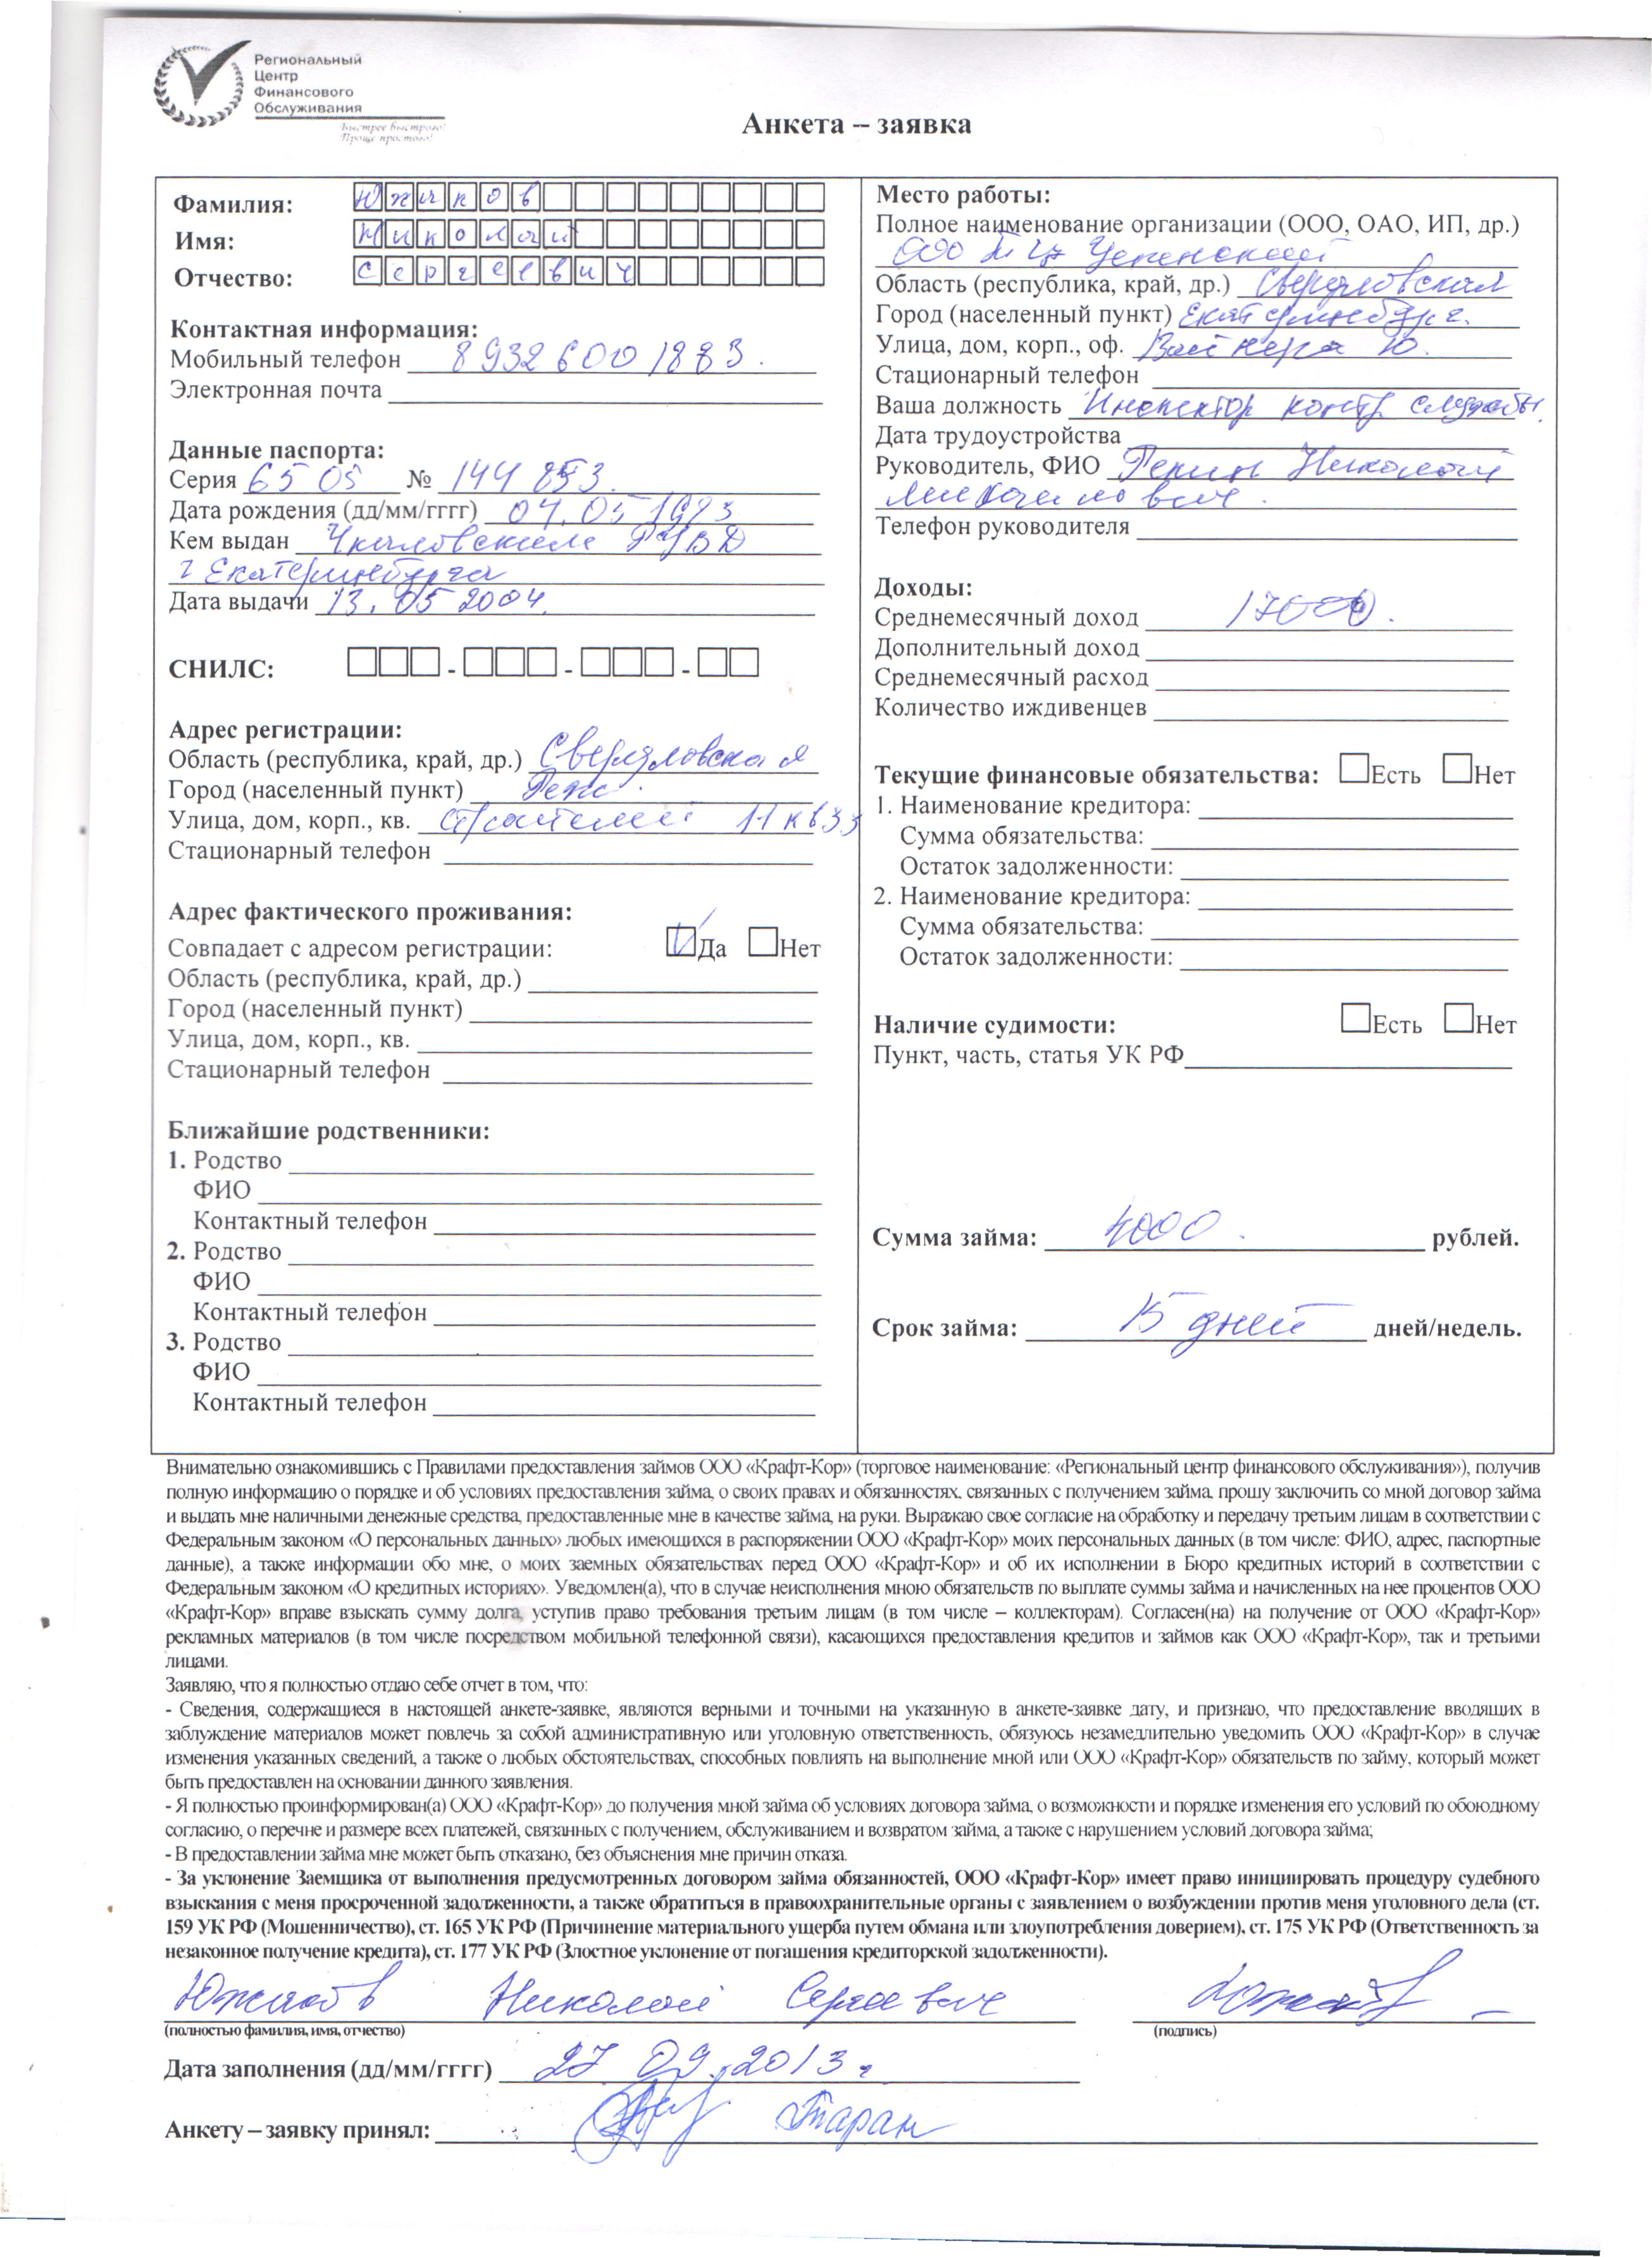 Региональный
Центр
Финансового
Обслуживания
Быстрее быстрого!
Проще простого!
Анкета – заявка
Фамилия: Южаков
Имя: Николай
Отчество: Сергеевич
Контактная информация:
Мобильный телефон 8 932 600 1883.
Электронная почта
Данные паспорта:
Серия 65 05 № 144 853.
Дата рождения (дд/мм/гггг) 04.05 1983
Кем выдан Чкаловским РУВД
г Екатеринбурга
Дата выдачи 13.05 2004.
СНИЛС: - - -
Адрес регистрации:
Область (республика, край, др.) Свердловская
Город (населенный пункт) Реж.
Улица, дом, корп., кв. Строителей 11 кв 33
Стационарный телефон
Адрес фактического проживания:
Совпадает с адресом регистрации: Да Нет
Область (республика, край, др.)
Город (населенный пункт)
Улица, дом, корп., кв.
Стационарный телефон
Ближайшие родственники:
1. Родство
ФИО
Контактный телефон
2. Родство
ФИО
Контактный телефон
3. Родство
ФИО
Контактный телефон
Место работы:
Полное наименование организации (ООО, ОАО, ИП, др.)
ООО ТЦ Успенский
Область (республика, край, др.) Свердловская
Город (населенный пункт) Екатеринбург.
Улица, дом, корп., оф. Вайнера 10.
Стационарный телефон
Ваша должность Инспектор контр службы.
Дата трудоустройства
Руководитель, ФИО Репин Николай
Михайлович.
Телефон руководителя
Доходы:
Среднемесячный доход 17000.
Дополнительный доход
Среднемесячный расход
Количество иждивенцев
Текущие финансовые обязательства: Есть Нет
1. Наименование кредитора:
Сумма обязательства:
Остаток задолженности:
2. Наименование кредитора:
Сумма обязательства:
Остаток задолженности:
Наличие судимости: Есть Нет
Пункт, часть, статья УК РФ
Сумма займа: 4000. рублей.
Срок займа: 15 дней дней/недель.
Внимательно ознакомившись с Правилами предоставления займов ООО «Крафт-Кор» (торговое наименование: «Региональный центр финансового обслуживания»), получив
полную информацию о порядке и об условиях предоставления займа, о своих правах и обязанностях, связанных с получением займа, прошу заключить со мной договор займа
и выдать мне наличными денежные средства, предоставленные мне в качестве займа, на руки. Выражаю свое согласие на обработку и передачу третьим лицам в соответствии с
Федеральным законом «О персональных данных» любых имеющихся в распоряжении ООО «Крафт-Кор» моих персональных данных (в том числе: ФИО, адрес, паспортные
данные), а также информации обо мне, о моих заемных обязательствах перед ООО «Крафт-Кор» и об их исполнении в Бюро кредитных историй в соответствии с
Федеральным законом «О кредитных историях». Уведомлен(а), что в случае неисполнения мною обязательств по выплате суммы займа и начисленных на нее процентов ООО
«Крафт-Кор» вправе взыскать сумму долга, уступив право требования третьим лицам (в том числе – коллекторам). Согласен(на) на получение от ООО «Крафт-Кор»
рекламных материалов (в том числе посредством мобильной телефонной связи), касающихся предоставления кредитов и займов как ООО «Крафт-Кор», так и третьими
лицами.
Заявляю, что я полностью отдаю себе отчет в том, что:
- Сведения, содержащиеся в настоящей анкете-заявке, являются верными и точными на указанную в анкете-заявке дату, и признаю, что предоставление вводящих в
заблуждение материалов может повлечь за собой административную или уголовную ответственность, обязуюсь незамедлительно уведомить ООО «Крафт-Кор» в случае
изменения указанных сведений, а также о любых обстоятельствах, способных повлиять на выполнение мной или ООО «Крафт-Кор» обязательств по займу, который может
быть предоставлен на основании данного заявления.
- Я полностью проинформирован(а) ООО «Крафт-Кор» до получения мной займа об условиях договора займа, о возможности и порядке изменения его условий по обоюдному
согласию, о перечне и размере всех платежей, связанных с получением, обслуживанием и возвратом займа, а также с нарушением условий договора займа;
- В предоставлении займа мне может быть отказано, без объяснения мне причин отказа.
- За уклонение Заемщика от выполнения предусмотренных договором займа обязанностей, ООО «Крафт-Кор» имеет право инициировать процедуру судебного
взыскания с меня просроченной задолженности, а также обратиться в правоохранительные органы с заявлением о возбуждении против меня уголовного дела (ст.
159 УК РФ (Мошенничество), ст. 165 УК РФ (Причинение материального ущерба путем обмана или злоупотребления доверием), ст. 175 УК РФ (Ответственность за
незаконное получение кредита), ст. 177 УК РФ (Злостное уклонение от погашения кредиторской задолженности).
Южаков Николай Сергеевич
(полностью фамилия, имя, отчество) (подпись)
Дата заполнения (дд/мм/гггг) 27 09.2013 г
Анкету – заявку принял: Таран